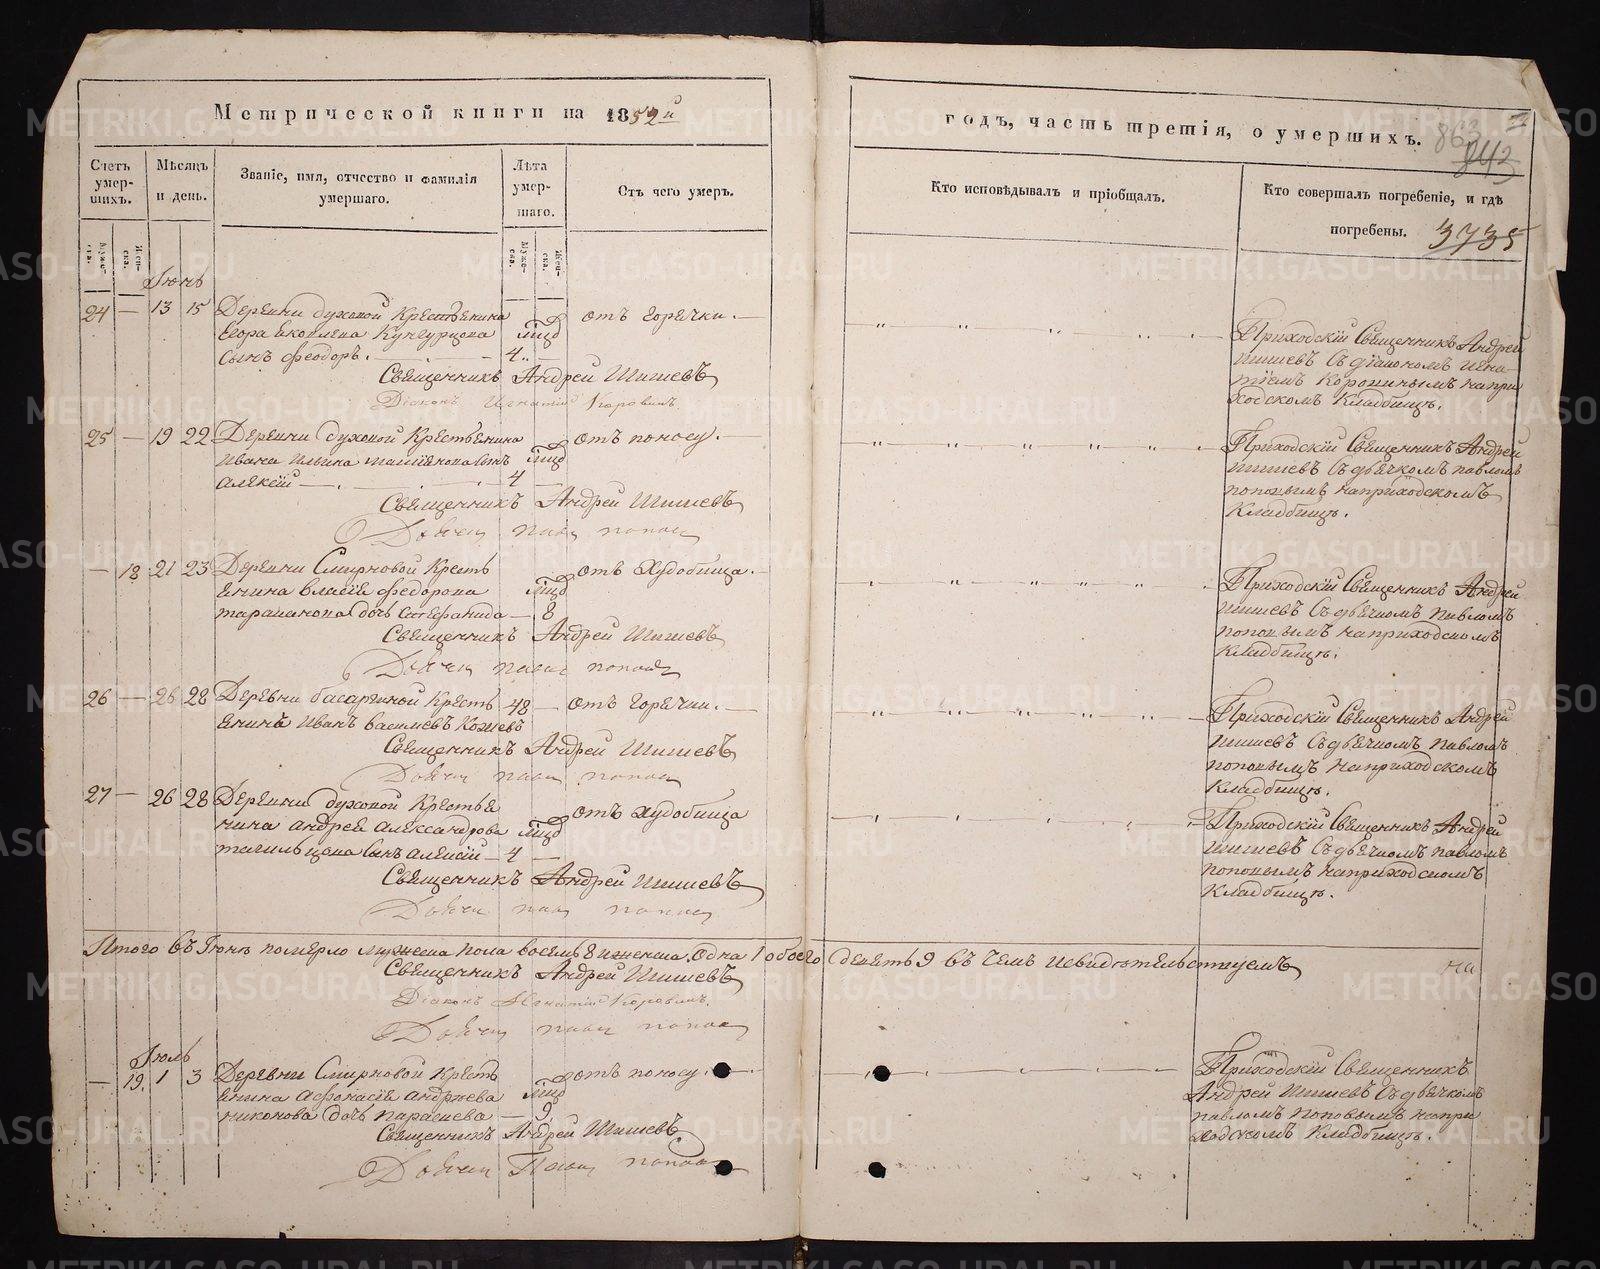 Метрической книги на 1852й
годъ, часть третія, о умершихъ.
863
842
3735
Счетъ умер-шихъ.
Мѣсяцъ и день.
Званіе, имя, отчество и фамилія умершаго.
Лѣта умер-шаго.
Отъ чего умеръ.
Кто исповѣдывалъ и пріобщалъ.
Кто совершалъ погребеніе, и гдѣ погребены.
Муже-ска.
Жен-ска.
Муже-ска.
Жен-ска.
Іюнь
24 — 13 15 Деревни духовой Крестьянина
Егора Яковлева Кунгурцова
сынъ феодоръ.
мцд
4
отъ горячки.
Священникъ Андрей Шишевъ
Діаконъ Игнатій Коровинъ
Приходскій Священникъ Андрей
Шишевъ съ діакономъ Игна-
тіемъ Коровинымъ на при
ходскомъ Кладбищѣ.
25 — 19 22 Деревни духовой Крестьянина
Ивана Ильина сынъ
Алексій
мцд
4
отъ поносу.
Священникъ Андрей Шишевъ
Дьячекъ Павелъ Поповъ
Приходскій Священникъ Андрей
Шишевъ съ дьячкомъ Павломъ
Поповымъ на приходскомъ
Кладбищѣ.
— 18 21 23 Деревни Смирновой Кресть
янина Власія Федорова
Тараканова дочь Стефанида
мцд
8
отъ Худобища.
Священникъ Андрей Шишевъ
Дьячекъ Павелъ Поповъ
Приходскій Священникъ Андрей
Шишевъ съ дьячкомъ Павломъ
Поповымъ на приходскомъ
Кладбищѣ.
26 — 26 28 Деревни басаргиной Кресть
янинъ Иванъ Васильевъ
48
отъ Горячки.
Священникъ Андрей Шишевъ
Дьячекъ Павелъ Поповъ
Приходскій Священникъ Андрей
Шишевъ съ дьячкомъ Павломъ
Поповымъ на приходскомъ
Кладбищѣ.
27 — 26 28 Деревни духовой Крестья
нина Андрея Александрова
Тагильцова сынъ Алексій
мцд
4
отъ худобища
Священникъ Андрей Шишевъ
Дьячекъ Павелъ Поповъ
Приходскій Священникъ Андрей
Шишевъ съ дьячкомъ Павломъ
Поповымъ на приходскомъ
Кладбищѣ.
Итого въ Іюнѣ померло мужеска пола восемь 8 женска одна 1 обоего девять 9 въ чемъ и свидѣтельствуемъ
Священникъ Андрей Шишевъ
Діаконъ Игнатій Коровинъ.
Дьячекъ Павелъ Поповъ
Іюль
— 19. 1 3 Деревни Смирновой Кресть
янина Афонасія Андреева
Никонова дочь Параскева
мцд
9
отъ поносу.
Священникъ Андрей Шишевъ
Дьячекъ Павелъ Поповъ
Приходскій Священникъ
Андрей Шишевъ съ дьячкомъ
Павломъ Поповымъ на при
ходскомъ Кладбищѣ.
METRIKI.GASO-URAL.RU